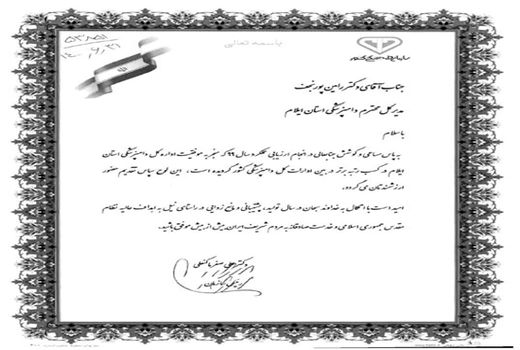 باسمه تعالی
۵۳۸۵۱
۱۴۰۰/۶/۳۱
سازمان دامپزشکی کشور
جناب آقای دکتر رامین پورنجف
مدیر کل محترم دامپزشکی استان ایلام
با سلام
به پاس مساعی و کوشش جنابعالی در انجام ارزیابی عملکرد سال ۹۹ که منجر به موفقیت اداره کل دامپزشکی استان
ایلام در کسب رتبه برتر در بین ادارات کل دامپزشکی کشور گردیده است، این لوح سپاس تقدیم حضور
ارزشمندتان می گردد.
امید است با اتکال به خداوند سبحان در سال تولید، پشتیبانی و مانع زدایی در راستای نیل به اهداف عالیه نظام
مقدس جمهوری اسلامی و خدمت صادقانه به مردم شریف ایران بیش از پیش موفق باشید.
دکتر علی صفر ماکنعلی